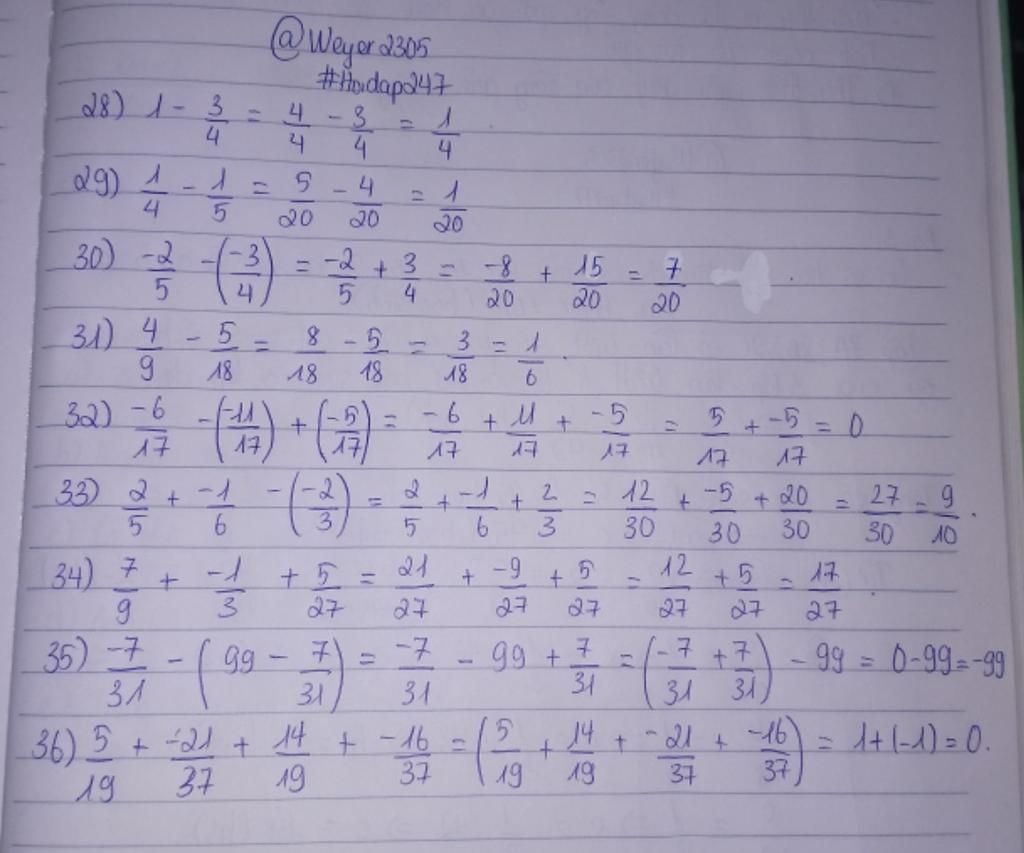 @Weyer2305
#Hoidap247
28) 1 - 3/4 = 4/4 - 3/4 = 1/4
29) 1/4 - 1/5 = 5/20 - 4/20 = 1/20
30) -2/5 - (-3/4) = -2/5 + 3/4 = -8/20 + 15/20 = 7/20
31) 4/9 - 5/18 = 8/18 - 5/18 = 3/18 = 1/6.
32) -6/17 - (-11/17) + (-5/17) = -6/17 + 11/17 + -5/17 = 5/17 + -5/17 = 0
33) 2/5 + -1/6 - (-2/3) = 2/5 + -1/6 + 2/3 = 12/30 + -5/30 + 20/30 = 27/30 = 9/10.
34) 7/9 + -1/3 + 5/27 = 21/27 + -9/27 + 5/27 = 12/27 + 5/27 = 17/27.
35) -7/31 - (99 - 7/31) = -7/31 - 99 + 7/31 = (-7/31 + 7/31) - 99 = 0-99=-99
36) 5/19 + -21/37 + 14/19 + -16/37 = (5/19 + 14/19 + -21/37 + -16/37) = 1+(-1)=0.